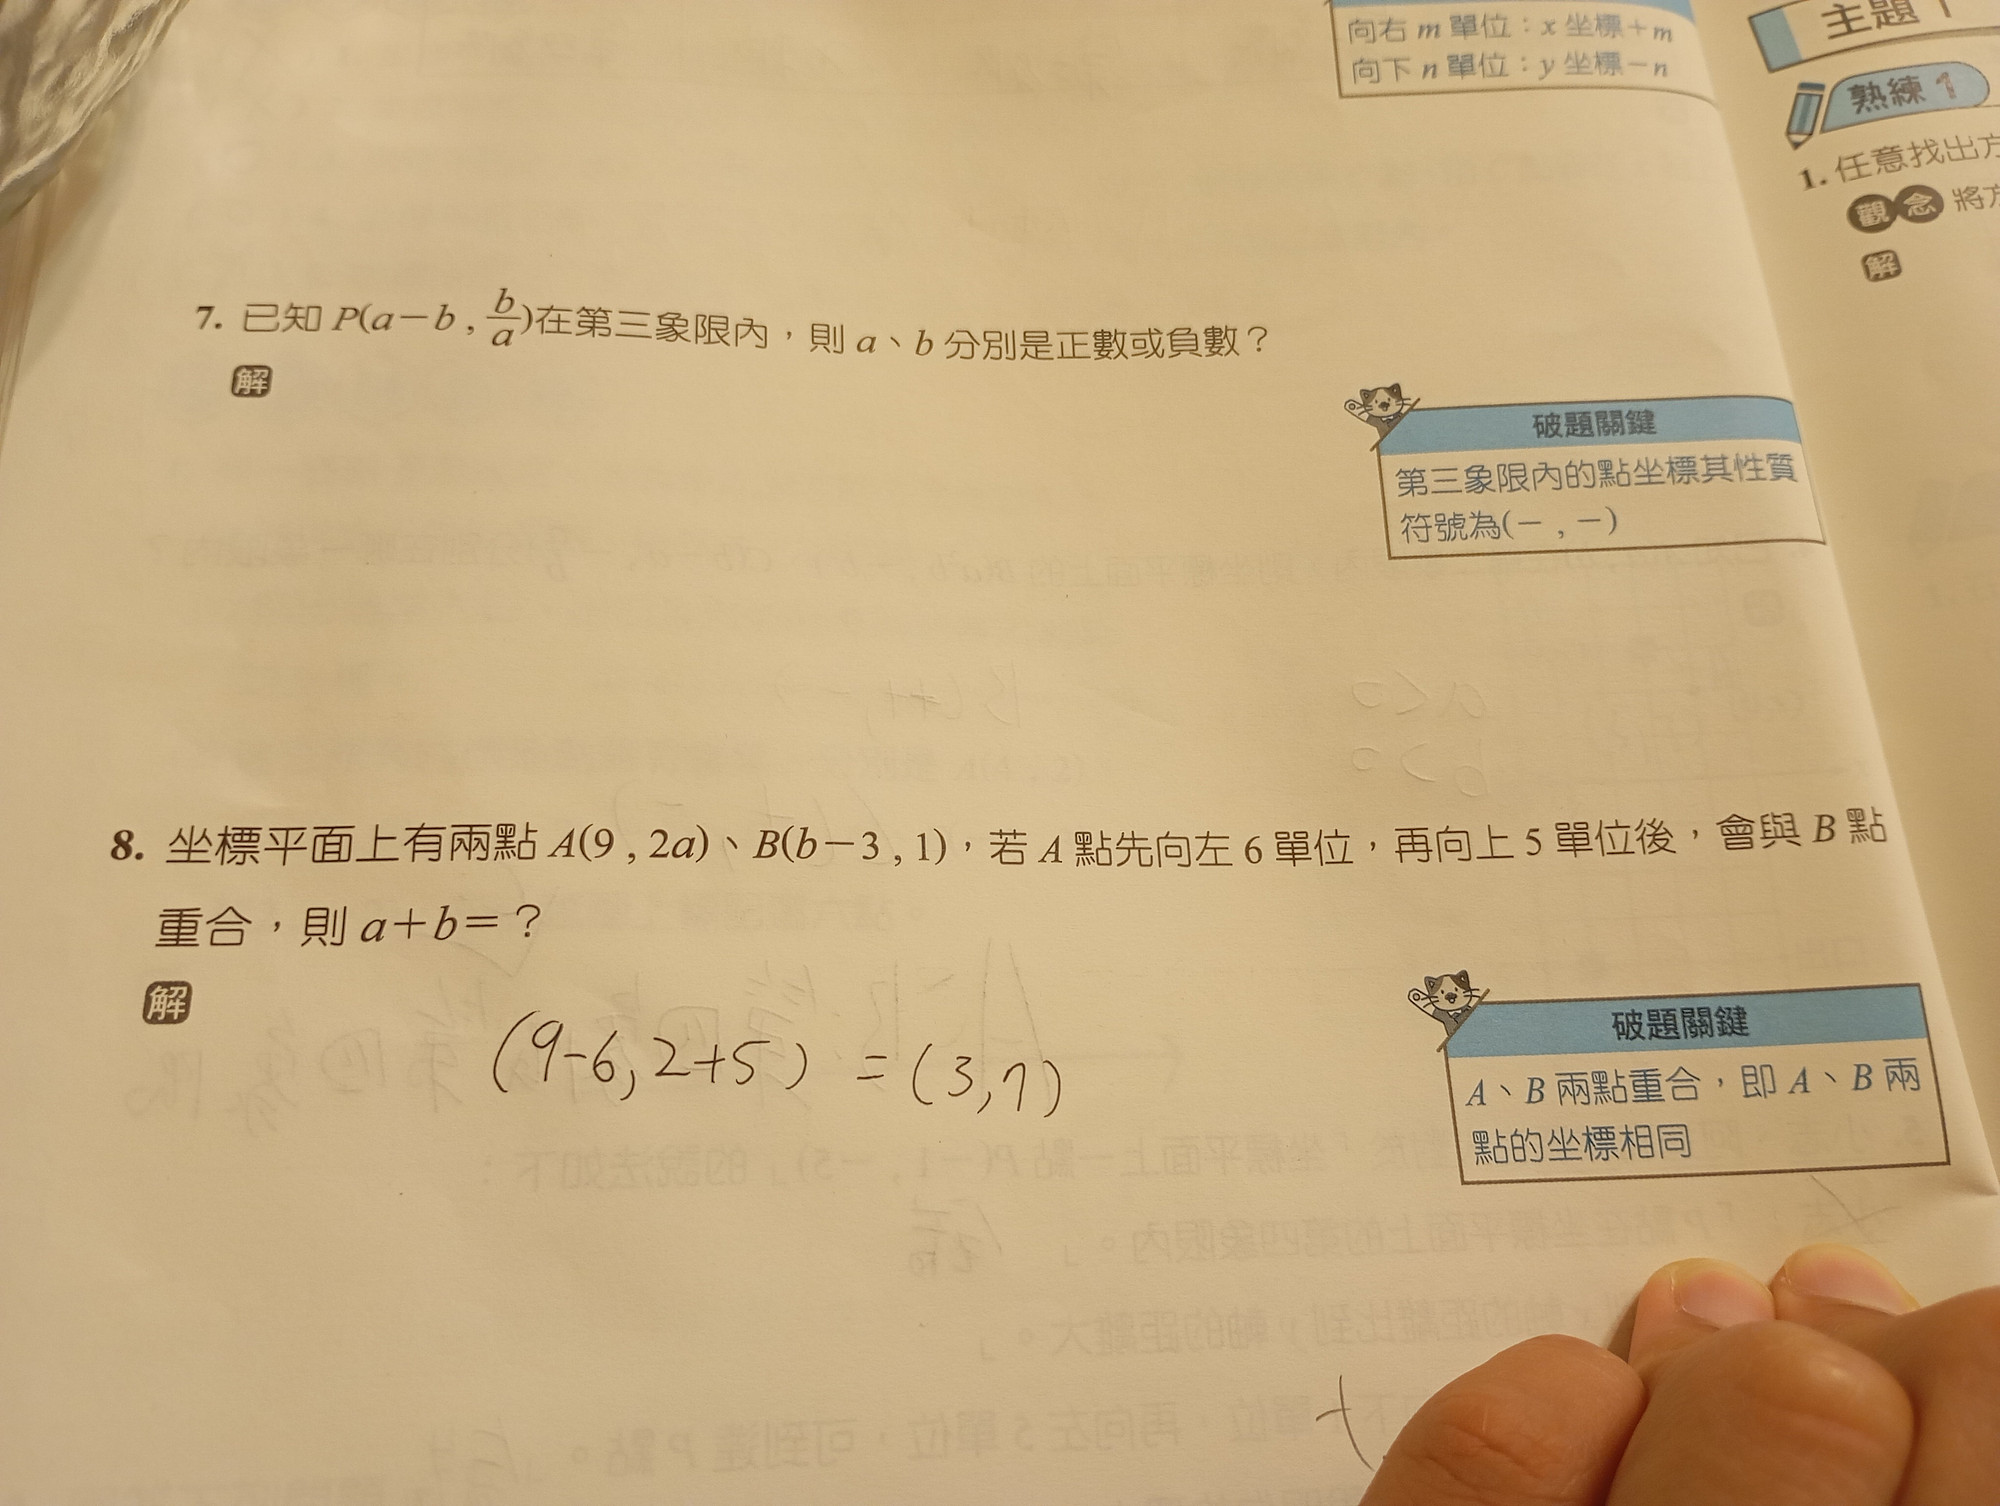 向右 m 單位：x 坐標＋m
向下 n 單位：y 坐標－n
主題 1
熟練 1
1. 任意找出方
觀念 將方
解
7. 已知 P(a－b , b/a)在第三象限內，則 a、b 分別是正數或負數？
解
破題關鍵
第三象限內的點坐標其性質
符號為(－ , －)
8. 坐標平面上有兩點 A(9 , 2a)、B(b－3 , 1)，若 A 點先向左 6 單位，再向上 5 單位後，會與 B 點
重合，則 a＋b＝？
解
(9-6, 2+5) = (3,7)
破題關鍵
A、B 兩點重合，即 A、B 兩
點的坐標相同